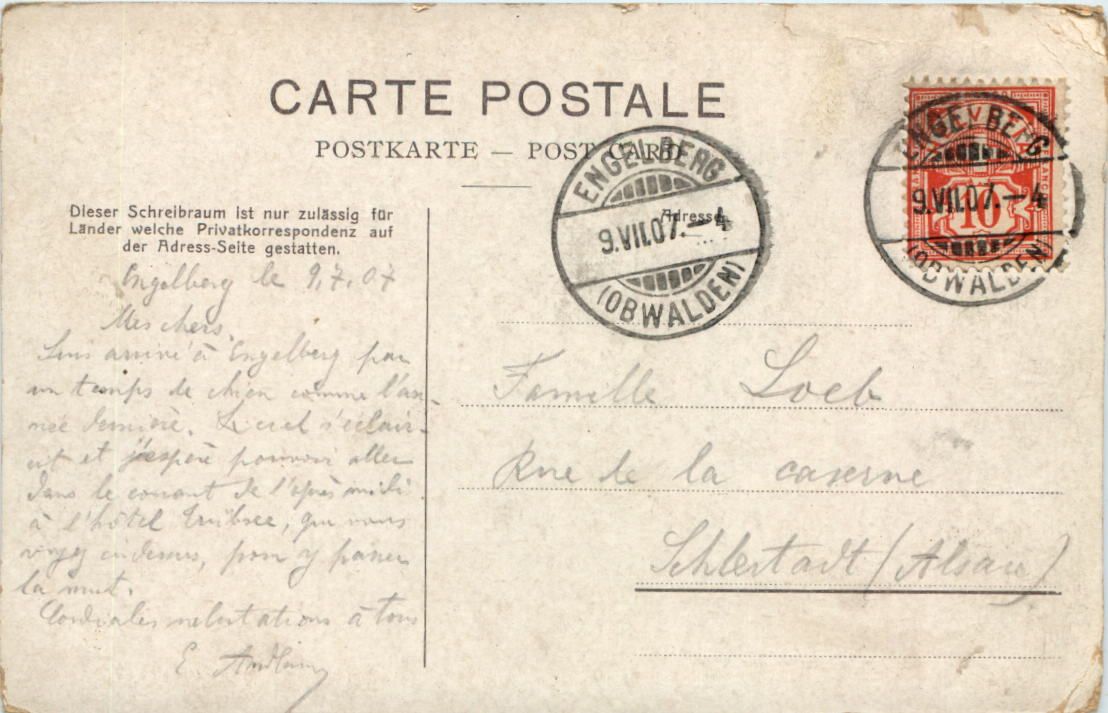 CARTE POSTALE
POSTKARTE — POST CARD
Dieser Schreibraum ist nur zulässig für
Länder welche Privatkorrespondenz auf
der Adress-Seite gestatten.
Adresse
ENGELBERG
9.VII.07.—4
(OBWALDEN)
HELVETIA
10
ENGELBERG
9.VII.07.—4
(OBWALDEN)
Engelberg le 9.7.07
Mes chers,
Suis arrivé à Engelberg par
un temps de chien comme l'an-
née dernière. Le ciel s'éclair-
cit et j'espère pouvoir aller
dans le courant de l'après midi
à l'hôtel Trübsee, que vous
voyez cidessus, pour y passer
la nuit.
Cordiales salutations à tous
E.
Famille Loeb
Rue de la caserne
Schlestadt (Alsace)